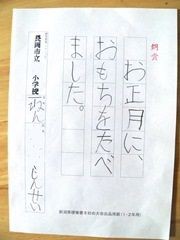 銅賞
お正月に、
おもちをたべ
ました。
長岡市立 小学校
ねん
しんせい
新潟県硬筆書き初め大会出品用紙(1・2年用)